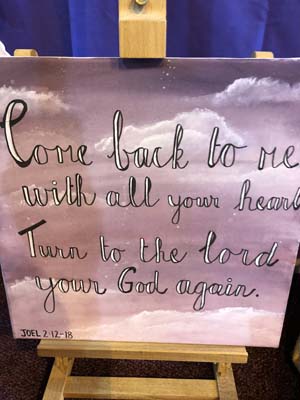 Come back to me
with all your heart
Turn to the lord
your God again.
JOEL 2:12-18